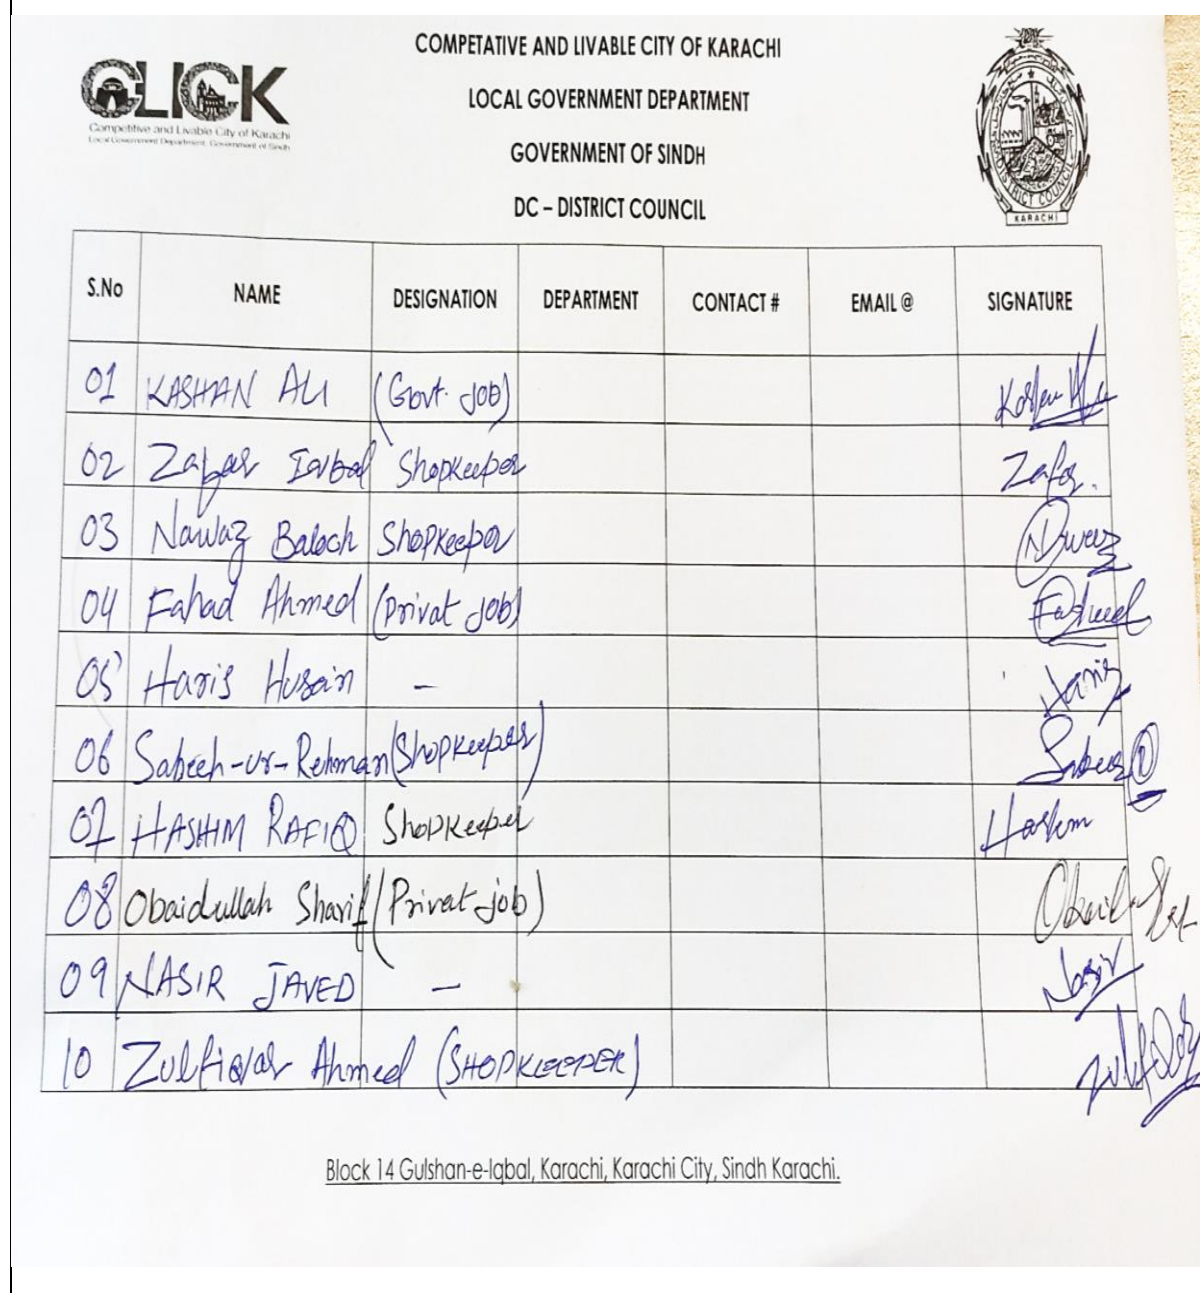 COMPETATIVE AND LIVABLE CITY OF KARACHI
CLICK
Competitive and Livable City of Karachi
Local Government Department, Government of Sindh
LOCAL GOVERNMENT DEPARTMENT
GOVERNMENT OF SINDH
DC – DISTRICT COUNCIL
DISTRICT COUNCIL
KARACHI
S.No NAME DESIGNATION DEPARTMENT CONTACT # EMAIL @ SIGNATURE
01 KASHAN ALI (Govt. Job)
02 Zafar Iqbal Shopkeeper Zafar.
03 Nawaz Baloch Shopkeeper Nawaz
04 Fahad Ahmed (Privat Job) Fahad
05 Haris Husain - Haris
06 Sabeeh-ur-Rehman (Shopkeeper)
07 HASHIM RAFIQ Shopkeeper Hashim
08 Obaidullah Sharif (Privat job)
09 NASIR JAVED - Nasir
10 Zulfiqar Ahmed (SHOPKEEPER)
Block 14 Gulshan-e-Iqbal, Karachi, Karachi City, Sindh Karachi.